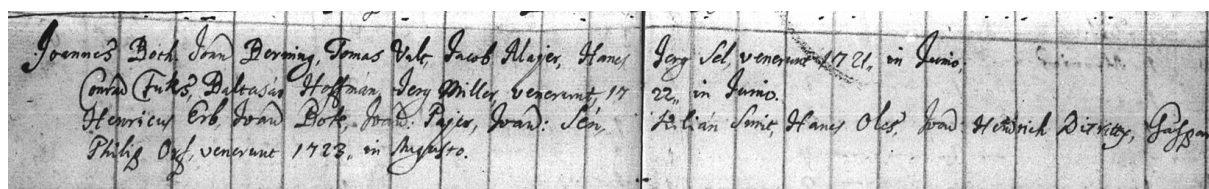 Joannes Boch, Joan Berning, Tomas Valt, Jacob Majer, Hanes Jerg Sel, venerunt 1721, in Junio,
Conrad Fuks, Baltasar Hoffman, Jerg Miller, venerunt, 1722,, in Junio.
Henricus Erb, Joan Bok, Joan: Pajer, Joan: Sen, Kilian Smit, Hanes Oles, Joan Hendrich, Gaspar
Philip, venerunt 1723,, in Augusto.